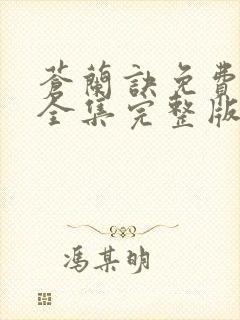 蒼蘭訣免費
全集完整版
馮某明